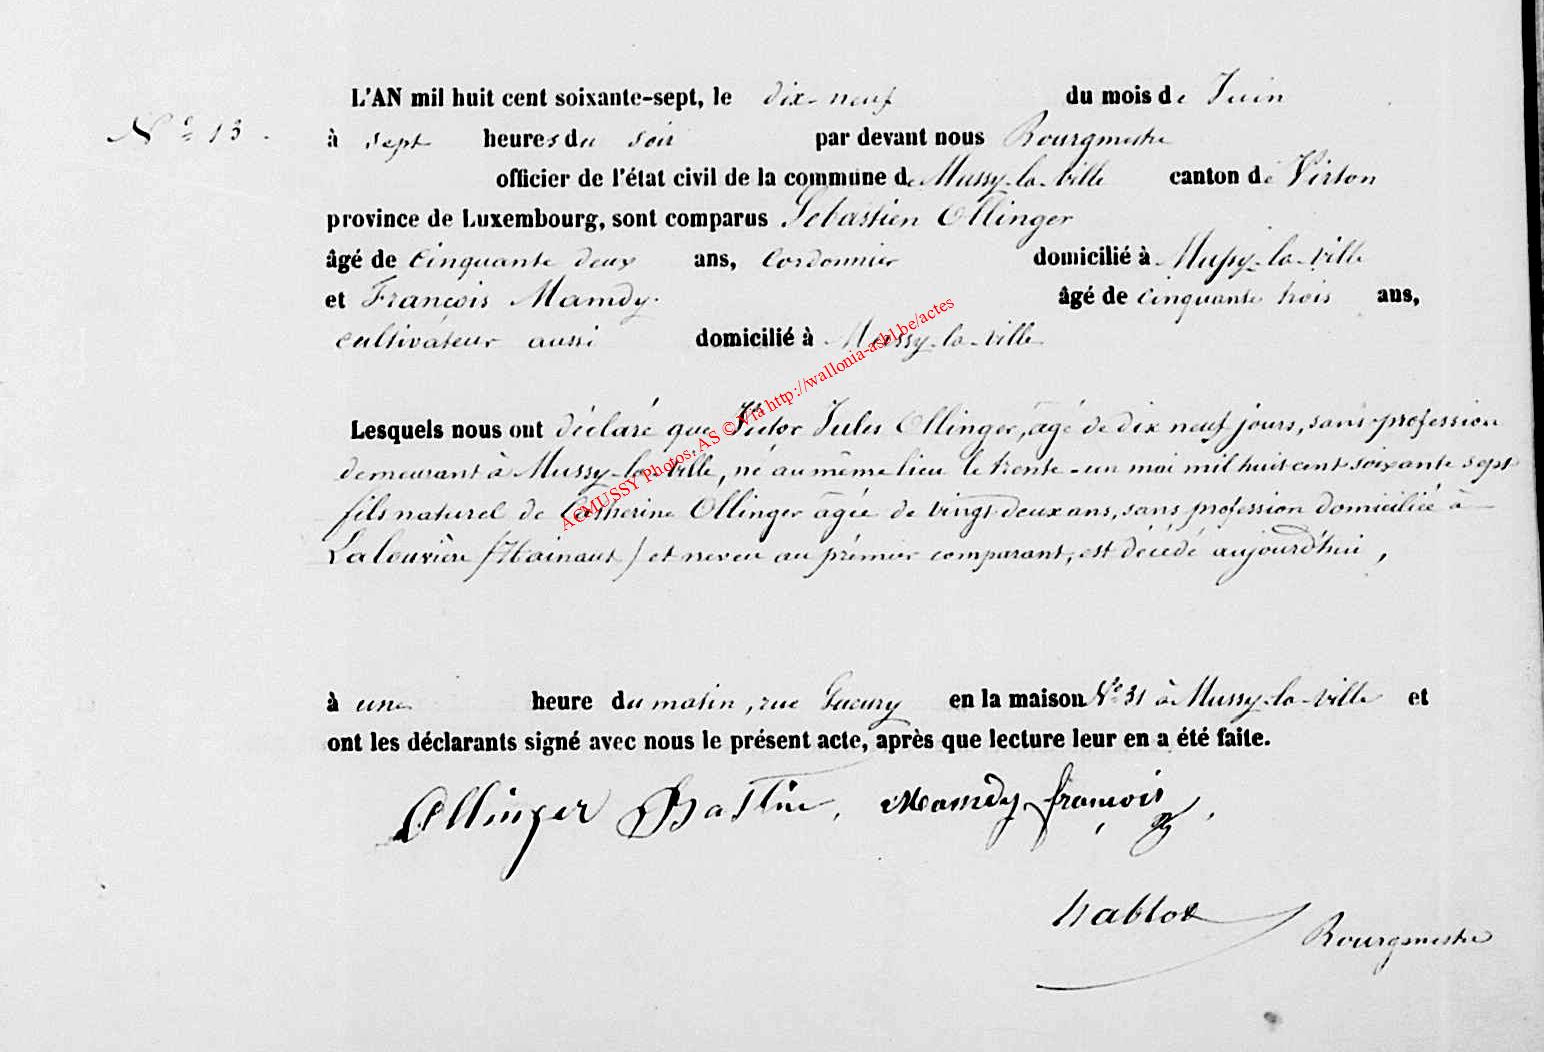 N° 13.
L'AN mil huit cent soixante-sept, le dix-neuf du mois de Juin
à sept heures du soir par devant nous Bourgmestre
officier de l'état civil de la commune de Mussy-la-Ville canton de Virton
province de Luxembourg, sont comparus Sébastien Ollinger
âgé de Cinquante deux ans, Cordonnier domicilié à Mussy-la-Ville
et François Mamdy. âgé de Cinquante trois ans,
cultivateur aussi domicilié à Mussy-la-Ville
Lesquels nous ont déclaré que Victor Jules Ollinger, âgé de dix neuf jours, sans profession
demeurant à Mussy-la-Ville, né au même lieu le trente-un mai mil huit cent soixante sept
fils naturel de Catherine Ollinger âgée de vingt-deux ans, sans profession domiciliée à
Lalouvière (Hainaut) et neveu au prémier comparant, est décédé aujourd'hui,
à une heure du matin, rue en la maison N° 31 à Mussy-la-Ville et
ont les déclarants signé avec nous le présent acte, après que lecture leur en a été faite.
Ollinger Mamdy françois,
Bourgmestre
ACMUSSY Photos. AS © Via http://wallonia-asbl.be/actes